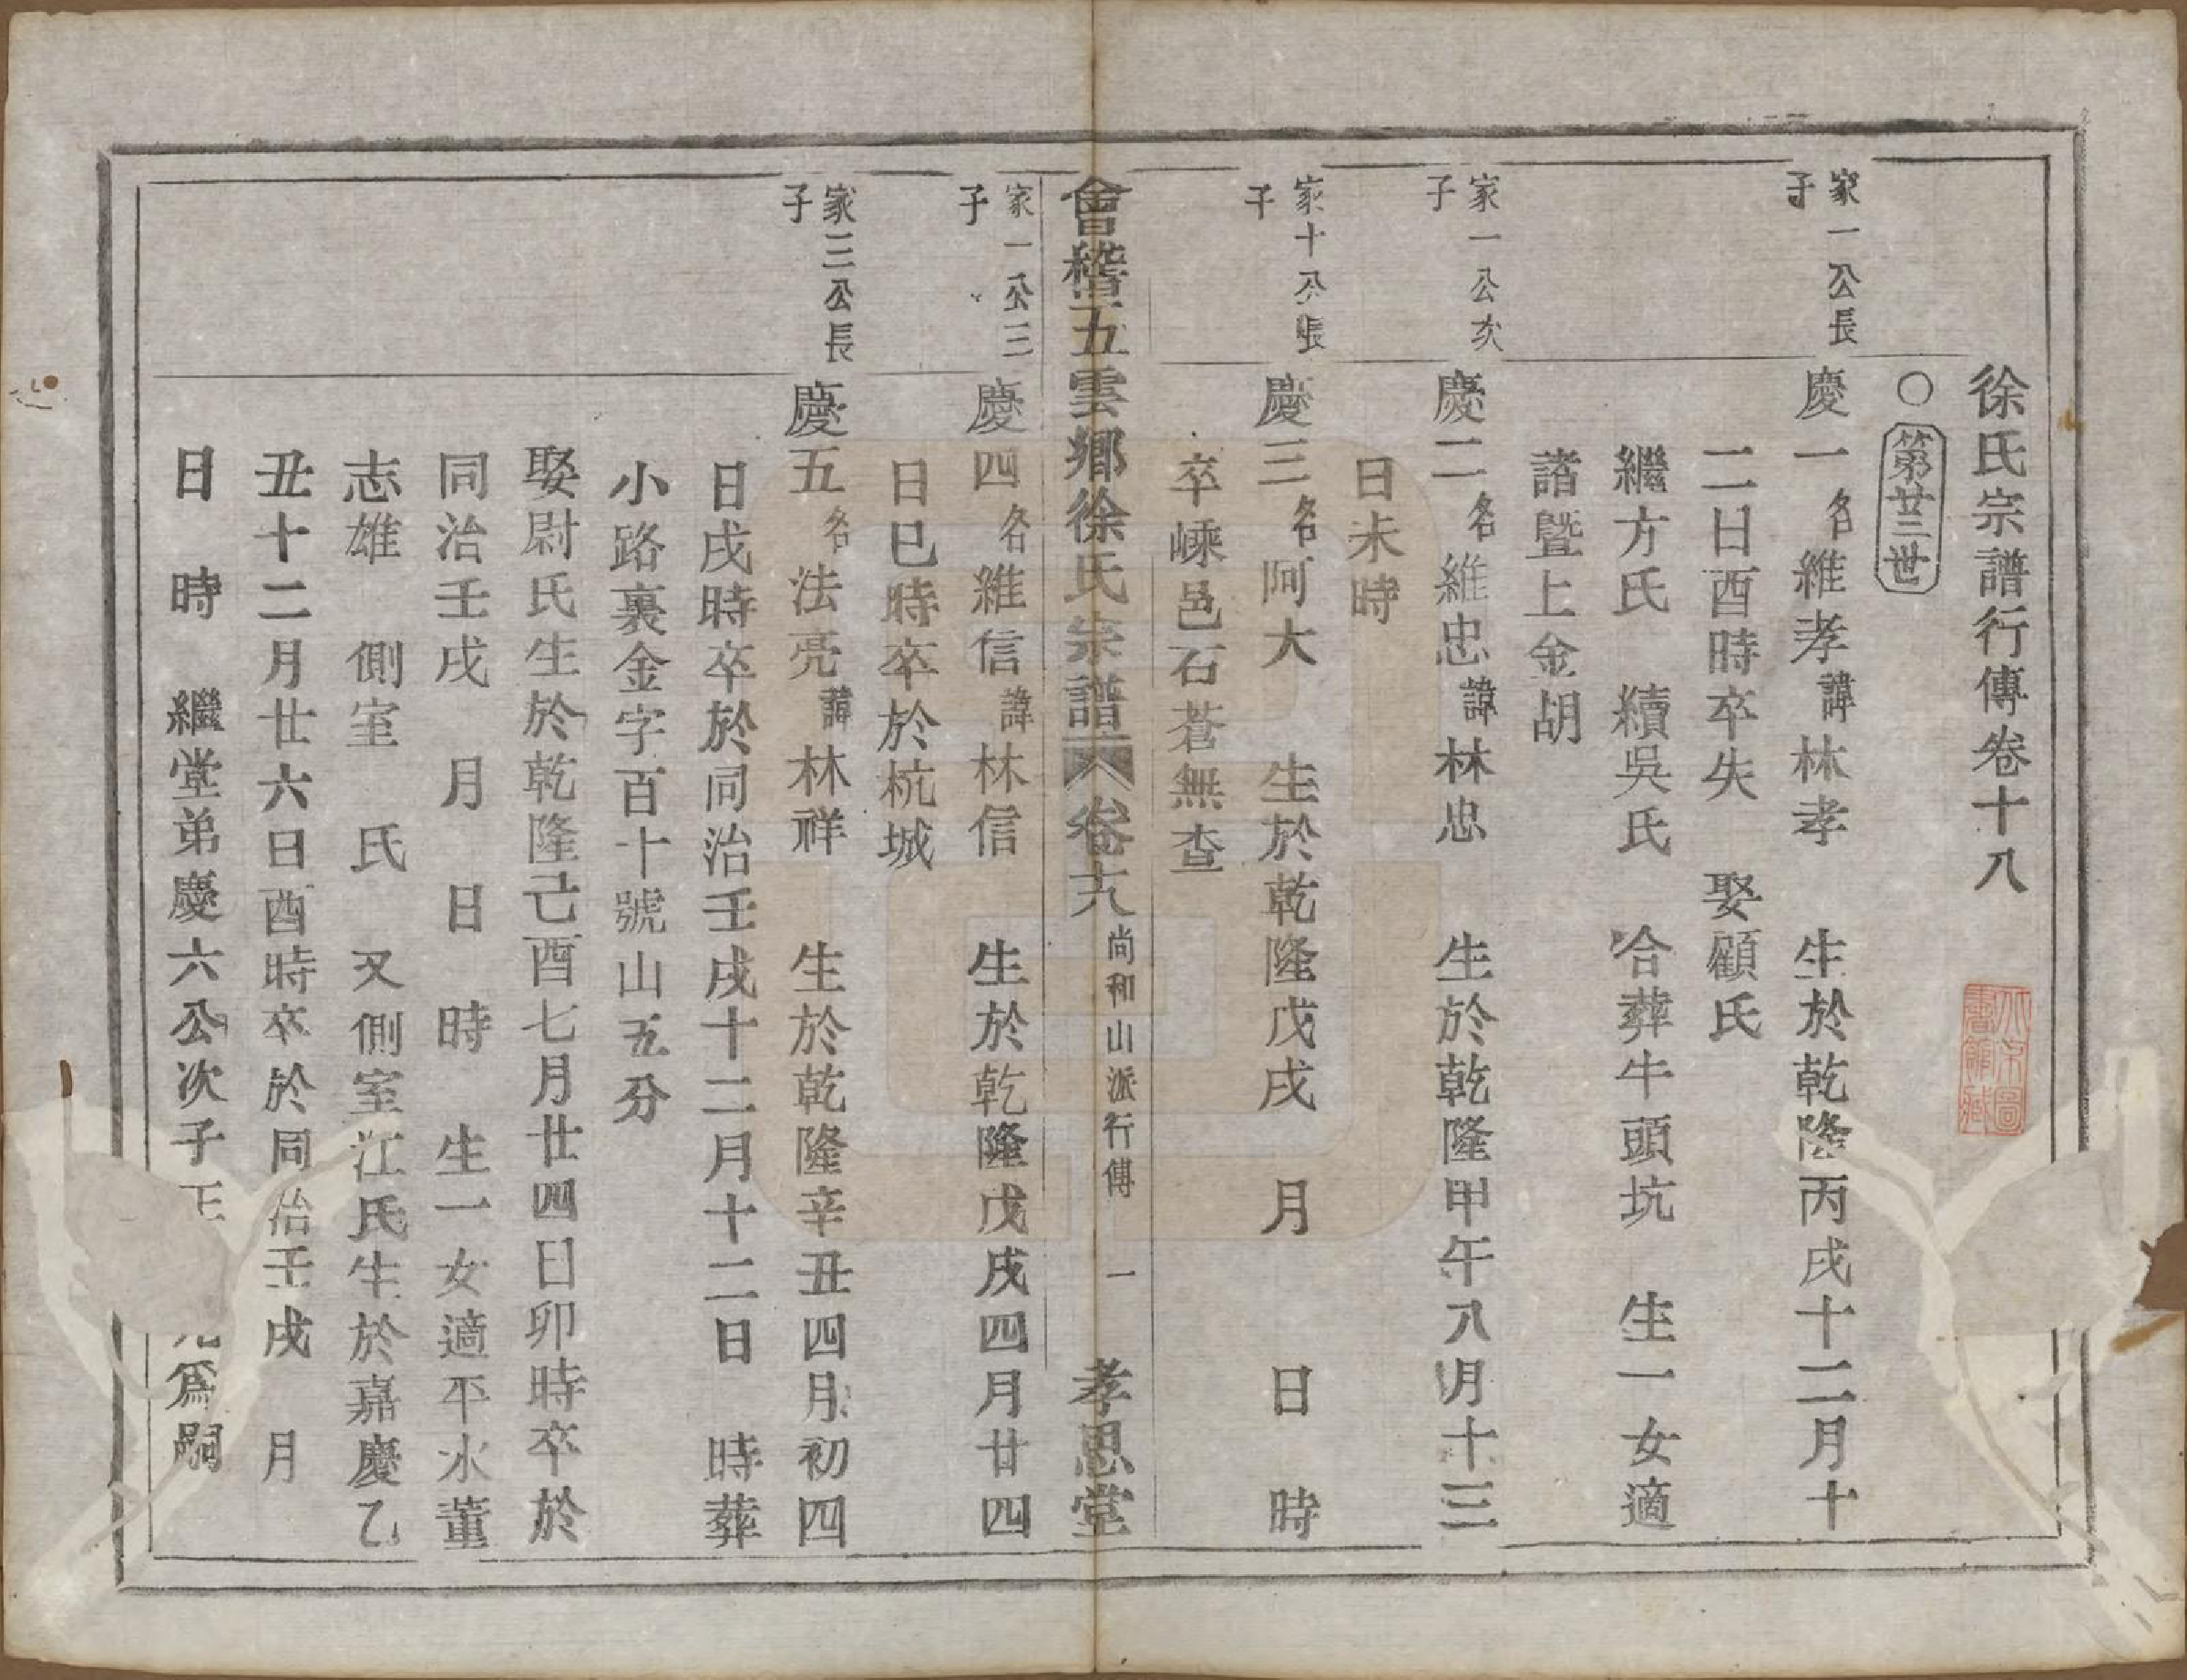 徐氏宗譜行傳卷十八
○第廿三世
家一公長子
慶一名維孝諱林孝 生於乾隆丙戌十二月十
二日酉時卒失 娶顧氏
繼方氏 續吳氏 合葬牛頭坑 生一女適
諸暨上金胡
家一公次子
慶二名維忠諱林忠 生於乾隆甲午八月十三
日未時
家十公長子
慶三名阿大 生於乾隆戊戌 月 日 時
卒嵊邑石蒼無查
會稽五雲鄉徐氏宗譜 卷十八 尚和山派行傳 一 孝思堂
家一公三子
慶四名維信諱林信 生於乾隆戊戌四月廿四
日巳時卒於杭城
家三公長子
慶五名法亮諱林祥 生於乾隆辛丑四月初四
日戌時卒於同治壬戌十二月十二日 時葬
小路裏金字百十號山五分
娶尉氏生於乾隆己酉七月廿四日卯時卒於
同治壬戌 月 日 時 生一女適平水董
志雄 側室 氏 又側室江氏生於嘉慶乙
丑十二月廿六日酉時卒於同治壬戌 月
日 時 繼堂弟慶六公次子 為嗣